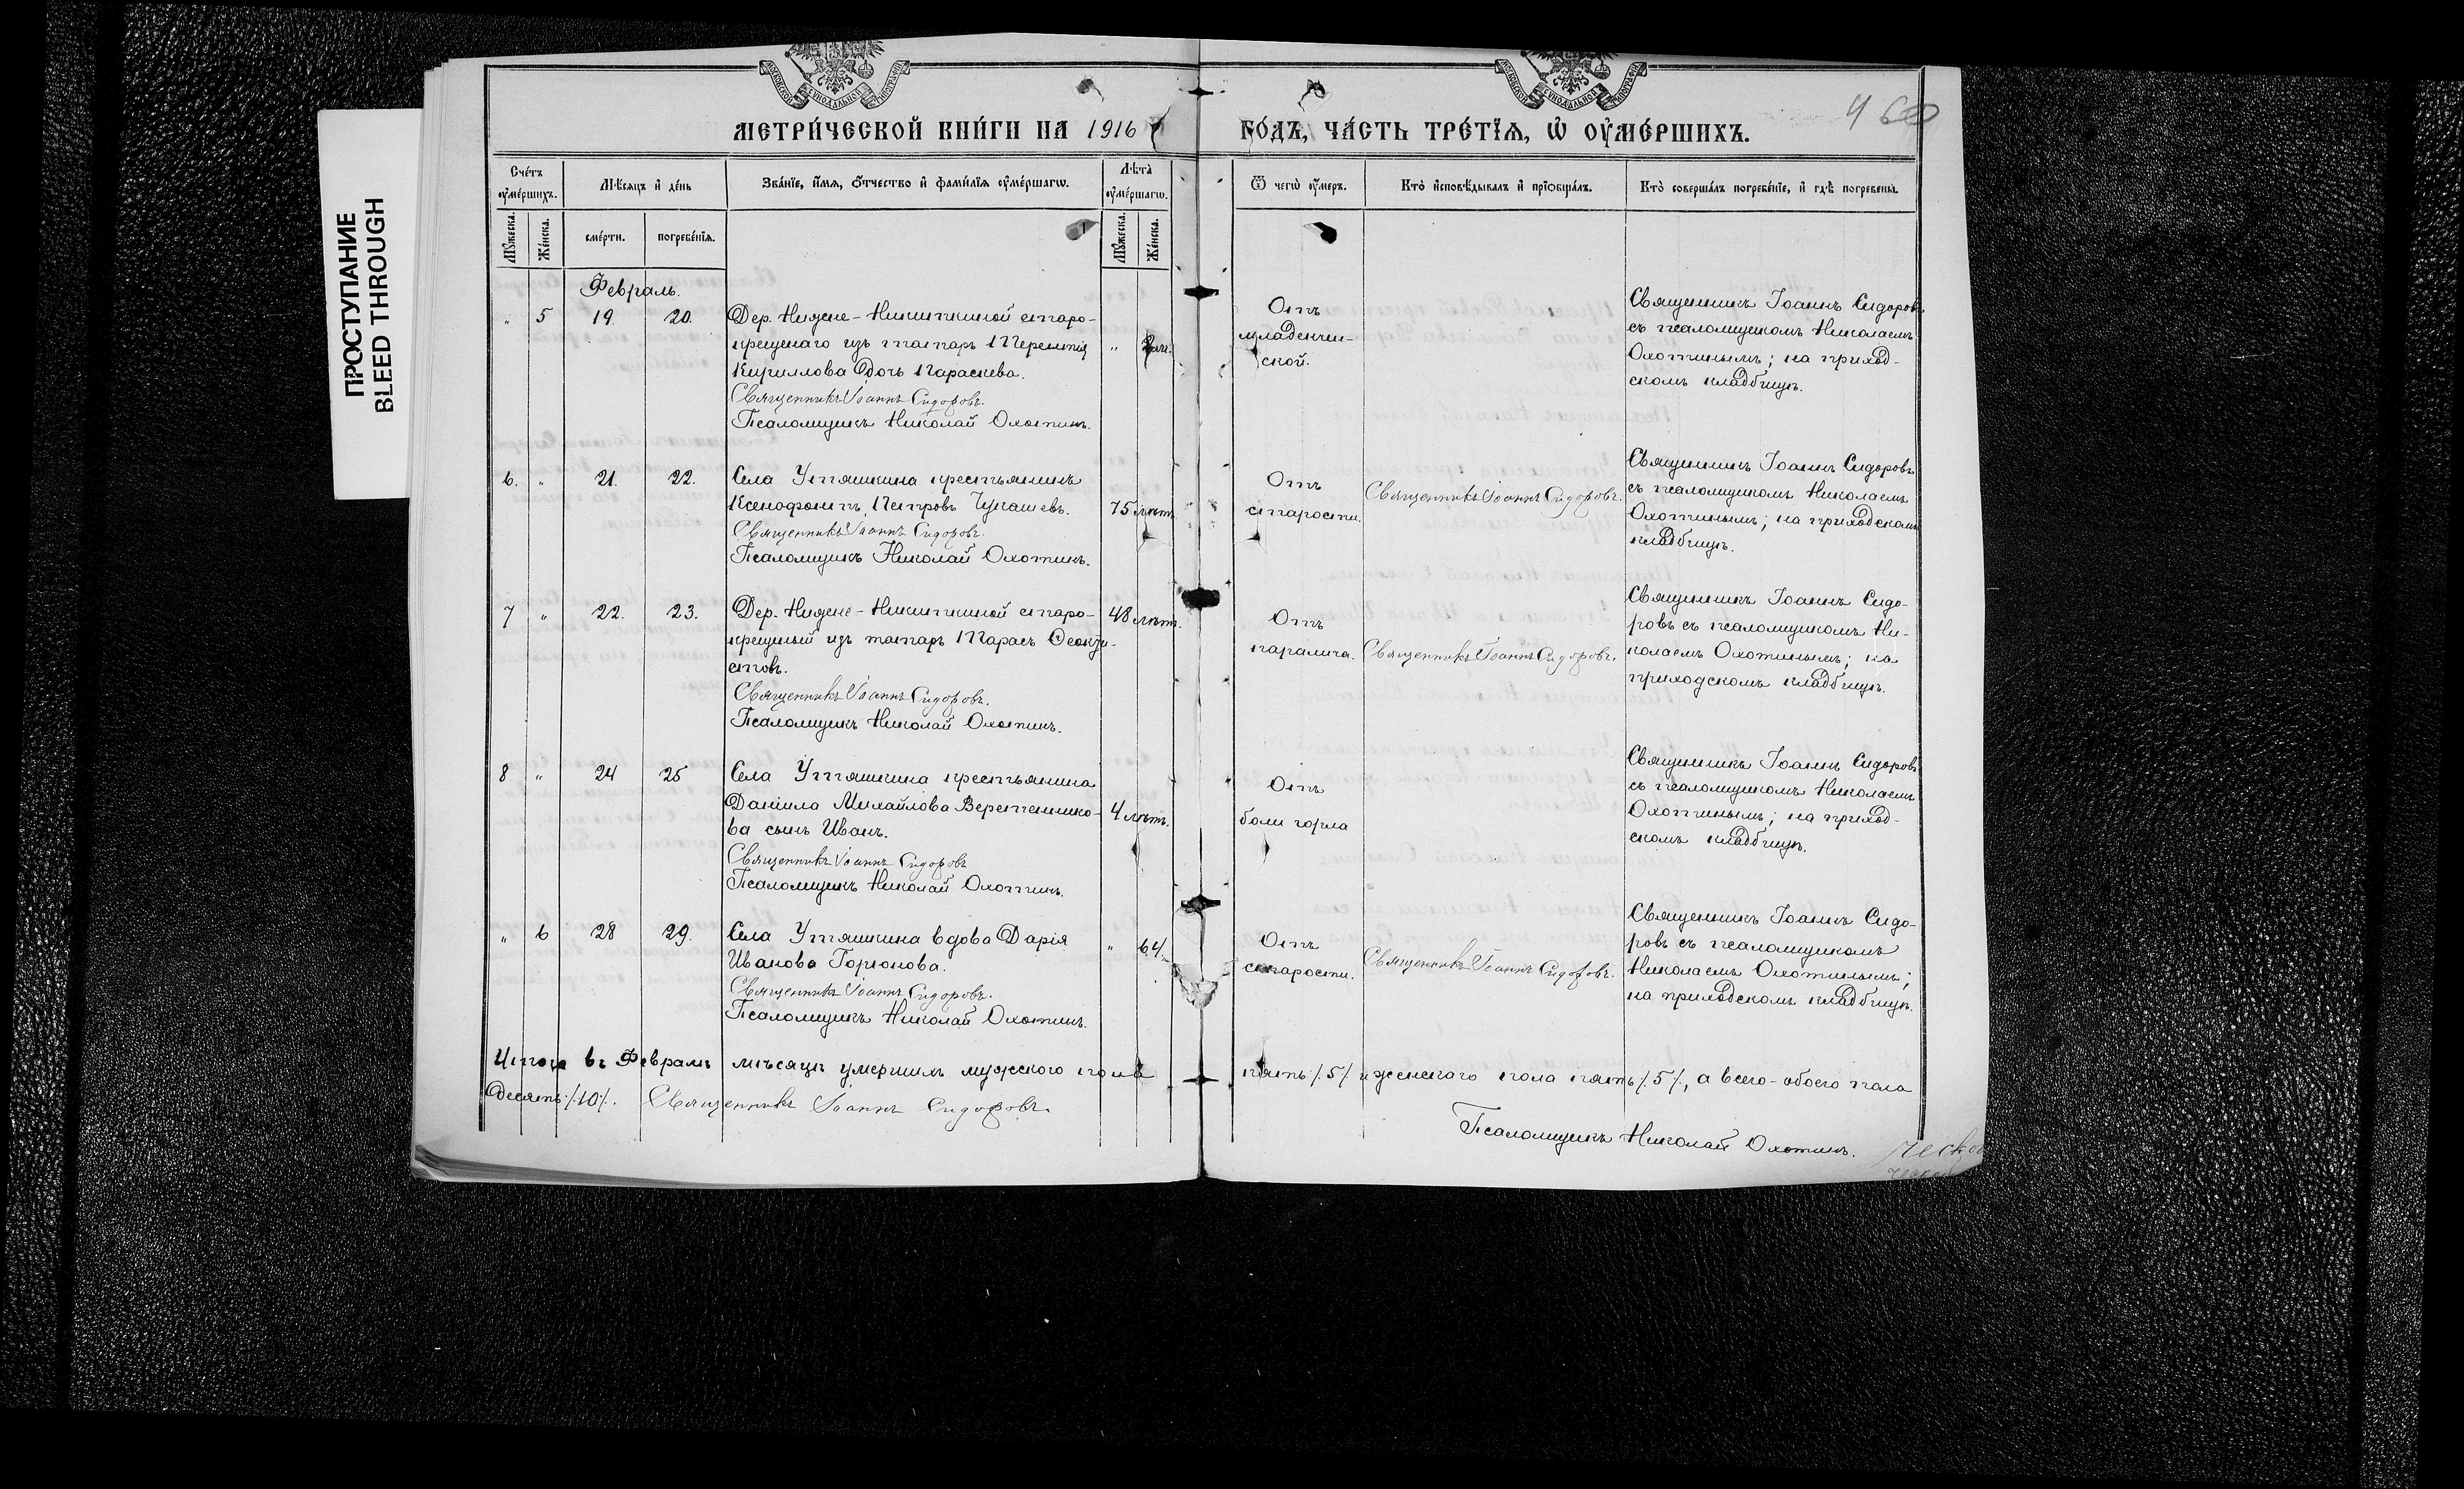 ПРОСТУПАНИЕ
BLEED THROUGH
МОСКОВСКОЙ СѴНОДАЛЬНОЙ ТИПОГРАФІИ
МОСКОВСКОЙ СѴНОДАЛЬНОЙ ТИПОГРАФІИ
МЕТРИ́ЧЕСКОЙ КНИ́ГИ НА 1916
ГО́ДЪ, ЧА́СТЬ ТРЕ́ТІѦ, Ѡ҆ ОУ҆МЕ́РШИХЪ.
Сче́тъ оу҆ме́ршихъ.
Мѣ́сѧцъ и҆ де́нь
Зва́нїе, и҆́мѧ, ѻ҆́тчество и҆ фами́лїѧ оу҆ме́ршагѡ.
Лѣ́та̀ оу҆ме́ршагѡ.
Ѿ чегѡ̀ оу҆́меръ.
Кто̀ и҆сповѣ́дывалъ и҆ прїѻбща́лъ.
Кто̀ соверша́лъ погребе́нїе, и҆ гдѣ̀ погребены̀.
Мꙋ́жеска.
Же́нска.
сме́рти.
погребе́нїѧ.
Мꙋ́жеска.
Же́нска.
Февраль.
" 5 19. 20.
Дер. Нижне-Никиткиной старо-
крещенаго изъ татаръ Терентія
Кириллова дочь Параскева.
Священникъ Іоаннъ Сидоровъ.
Псаломщикъ Николай Охотинъ.
"
Отъ
младенчи-
ской.
Священникъ Іоаннъ Сидоровъ
съ псаломщикомъ Николаемъ
Охотинымъ; на приход-
скомъ кладбищѣ.
6. " 21. 22.
Села Утяшкина крестьянинъ
Ксенофонтъ Петровъ Чукашевъ.
Священникъ Іоаннъ Сидоровъ.
Псаломщикъ Николай Охотинъ.
75 лѣтъ
Отъ
старости.
Священникъ Іоаннъ Сидоровъ.
Священникъ Іоаннъ Сидоровъ
съ псаломщикомъ Николаемъ
Охотинымъ; на приходскомъ
кладбищѣ.
7 " 22. 23.
Дер. Нижне-Никиткиной старо-
крещеный изъ татаръ Тарасъ Феокти-
стовъ.
Священникъ Іоаннъ Сидоровъ.
Псаломщикъ Николай Охотинъ.
48 лѣтъ.
Отъ
паралича.
Священникъ Іоаннъ Сидоровъ.
Священникъ Іоаннъ Сидо-
ровъ съ псаломщикомъ Ни-
колаемъ Охотинымъ; на
приходскомъ кладбищѣ.
8 " 24 25
Села Утяшкина крестьянина
Даніила Михайлова Веретенико-
ва сынъ Иванъ.
Священникъ Іоаннъ Сидоровъ
Псаломщикъ Николай Охотинъ.
4 лѣтъ.
Отъ
боли горла
Священникъ Іоаннъ Сидоровъ
съ псаломщикомъ Николаемъ
Охотинымъ; на приход-
скомъ кладбищѣ.
" 6 28 29.
Села Утяшкина вдова Дарія
Иванова Горюнова.
Священникъ Іоаннъ Сидоровъ.
Псаломщикъ Николай Охотинъ.
" 64.
Отъ
старости.
Священникъ Іоаннъ Сидоровъ.
Священникъ Іоаннъ Сидо-
ровъ съ псаломщикомъ
Николаемъ Охотинымъ;
на приходскомъ кладбищѣ.
Итого въ Февралѣ мѣсяцѣ умершихъ мужского пола пять /.5/. и женскаго пола пять /.5/., а всего-обоего пола
десять /.10/. Священникъ Іоаннъ Сидоровъ.
Псаломщикъ Николай Охотинъ.
ческой